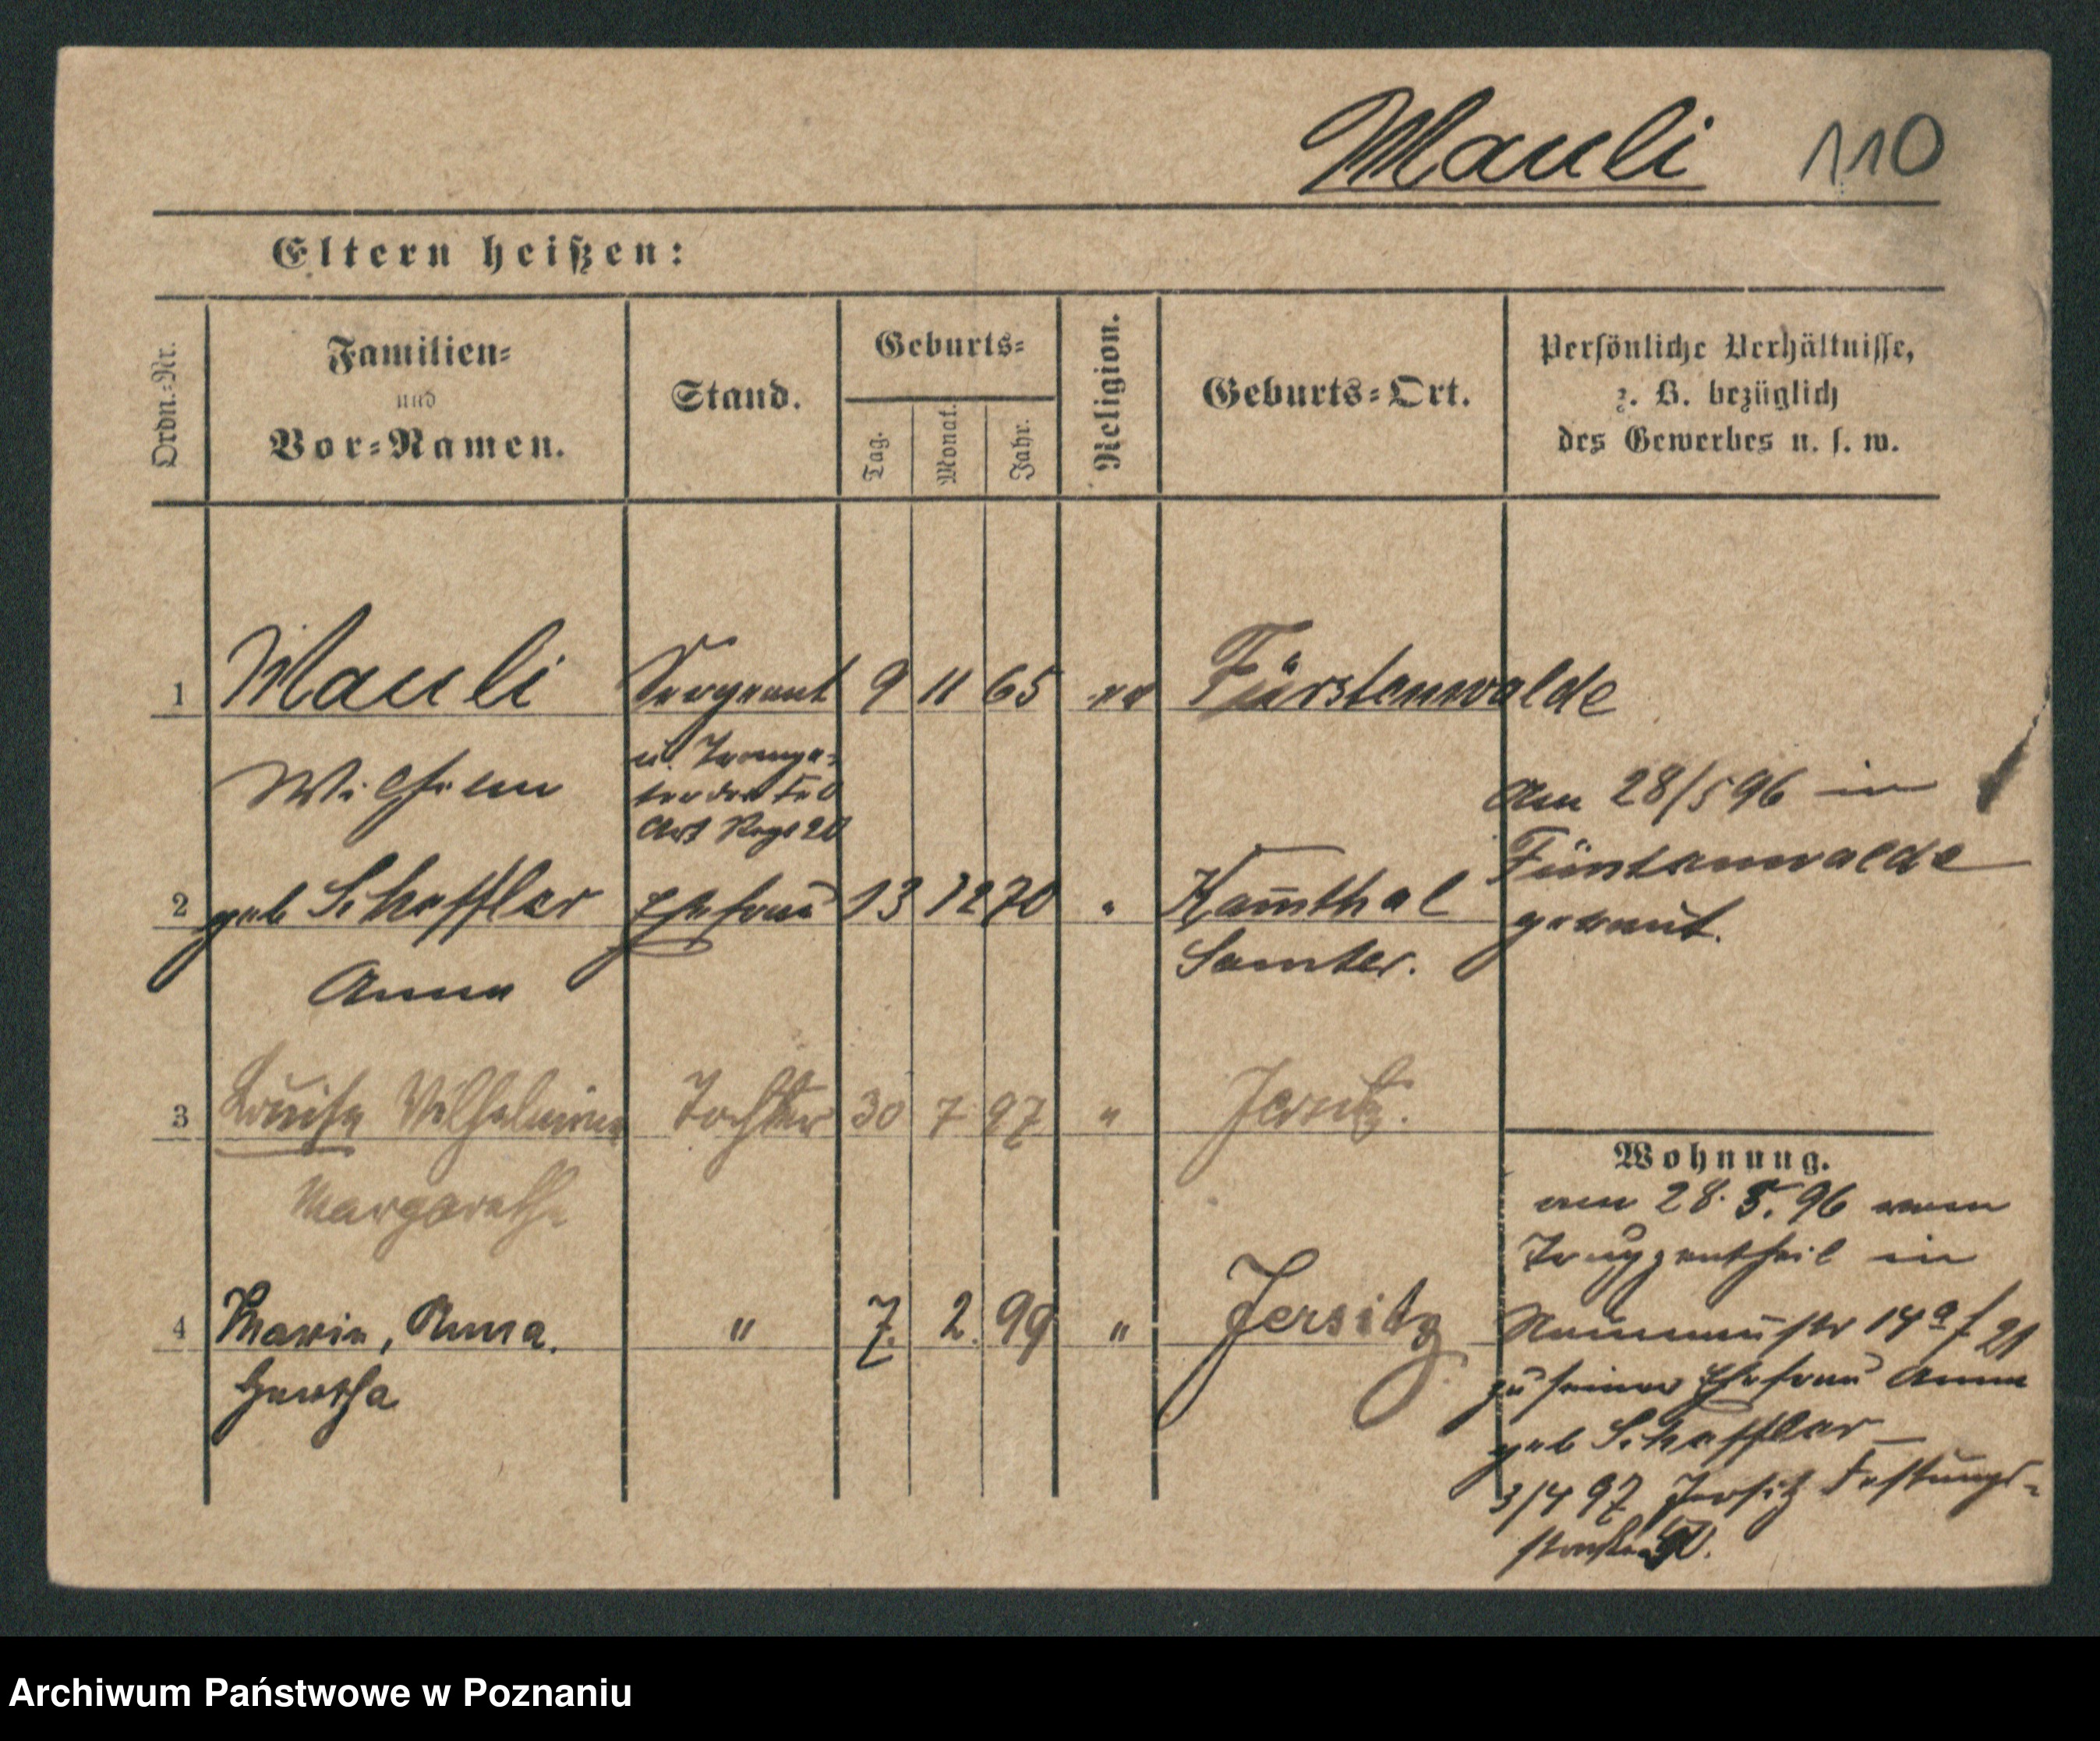 Mauli 110
Eltern heißen:
Ordn.=Nr.
Familien=
und
Vor=Namen.
Stand.
Geburts=
Tag.
Monat.
Jahr.
Religion.
Geburts=Ort.
Persönliche Verhältnisse,
z. B. bezüglich
des Gewerbes u. s. w.
1 Mauli Sergeant 9 11 65 ev Fürstenwalde
Wilhelm
u. Trompe=
ter des Feld
Art Regt 20
Am 28/5 96 in
Fürstenwalde
getraut.
2 geb Scheffler Ehefrau 13 12 70 " Kamthal
Anna
Samter.
3 Louise Wilhelmine Tochter 30 7 97 " Jersitz.
Margarethe
4 Marie, Anna. " 7. 2. 99 " Jersitz
Hertha
Wohnung.
am 28. 5. 96 vom
Truppentheil in
14a
zu seiner Ehefrau Anna
geb Scheffler –
3/4 97 Jersitz Festungs=
straße
Archiwum Państwowe w Poznaniu